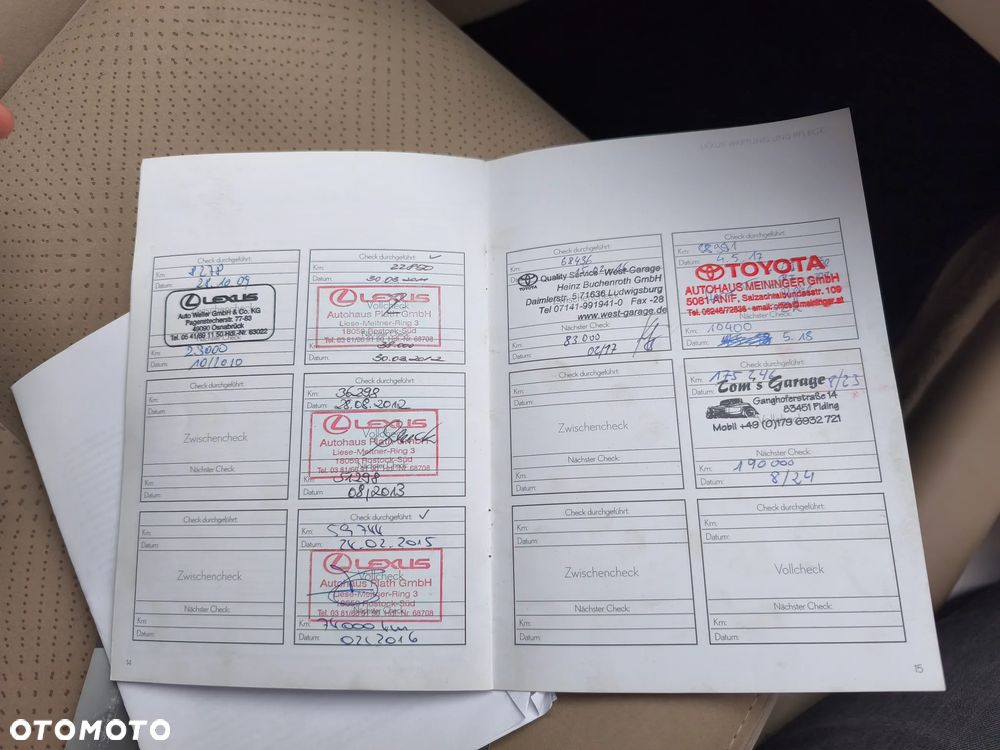 LEXUS WARTUNG UND PFLEGE
Check durchgeführt:
Km: 8278
Datum: 28.10.09
LEXUS
Auto Weller GmbH & Co. KG
Pagenstecherstr. 77-83
49090 Osnabrück
Tel. 05 41/69 11 50 Hdl.-Nr. 83022
Km: 23000
Datum: 10/2010
Check durchgeführt: ✓
Km: 22850
Datum: 30.03.2011
LEXUS
Vollcheck
Autohaus Plath GmbH
Liese-Meitner-Ring 3
18059 Rostock-Süd
Tel. 03 81/66 91 90 Hdl.-Nr. 68708
Km:
Datum: 30.03.2012
Check durchgeführt:
Km:
Datum:
Zwischencheck
Nächster Check:
Km:
Datum:
Check durchgeführt:
Km: 36298
Datum: 28.08.2012
LEXUS
Vollcheck
Autohaus Plath GmbH
Liese-Meitner-Ring 3
18059 Rostock-Süd
Tel. 03 81/66 91 90 Hdl.-Nr. 68708
Km: 51298
Datum: 08/2013
Check durchgeführt:
Km:
Datum:
Zwischencheck
Nächster Check:
Km:
Datum:
Check durchgeführt: ✓
Km: 59744
Datum: 24.02.2015
LEXUS
Vollcheck
Autohaus Plath GmbH
Liese-Meitner-Ring 3
18059 Rostock-Süd
Tel. 03 81/66 91 90 Hdl.-Nr. 68708
Km: 74000 km
Datum: 02/2016
14
Check durchgeführt:
Km: 68436
Quality Service West-Garage
Heinz Buchenroth GmbH
Daimlerstr. 5 71636 Ludwigsburg
Tel 07141-991941-0 Fax -28
www.west-garage.de
Nächster Check:
Km: 83000
Datum: 02/17
Check durchgeführt:
Km:
Datum: 4.5.17
TOYOTA
AUTOHAUS MEININGER GmbH
5081 ANIF, Salzachtalbundesstr. 109
Tel. 06246/72538 - email: office@meininger.at
Nächster Check:
Km: 10400
Datum: 5.18
Check durchgeführt:
Km:
Datum:
Zwischencheck
Nächster Check:
Km:
Datum:
Check durchgeführt:
Km: 175 246
Datum: 8/23
Tom's Garage
Ganghoferstraße 14
83451 Piding
Mobil +49 (0)179 6932 721
Nächster Check:
Km: 190000
Datum: 8/24
Check durchgeführt:
Km:
Datum:
Zwischencheck
Nächster Check:
Km:
Datum:
Check durchgeführt:
Km:
Datum:
Vollcheck
Nächster Check:
Km:
Datum:
15
OTOMOTO